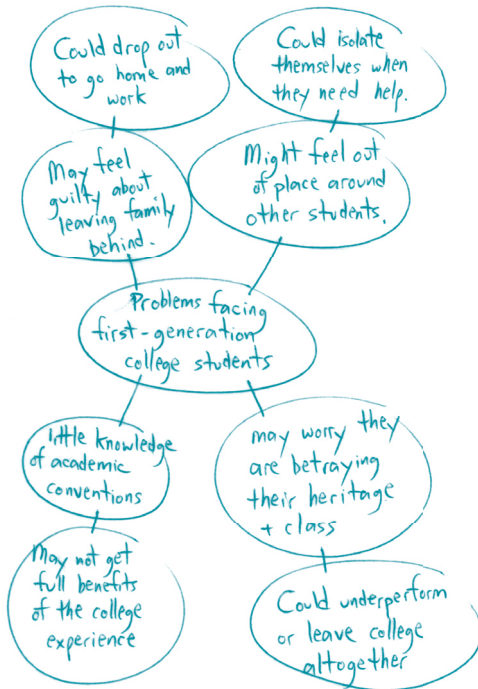 Could drop out
to go home and
work
Could isolate
themselves when
they need help.
May feel
guilty about
leaving family
behind.
Might feel out
of place around
other students.
Problems facing
first-generation
college students
little knowledge
of academic
conventions
may worry they
are betraying
their heritage
+ class
May not get
full benefits
of the college
experience
Could underperform
or leave college
altogether